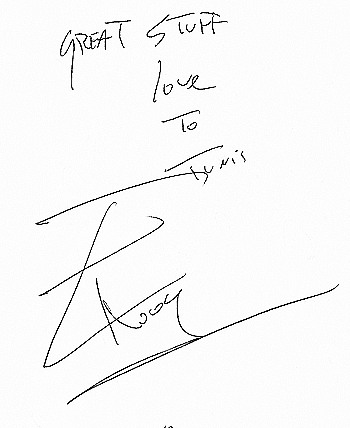 GREAT STUFF
love
To
Tunis